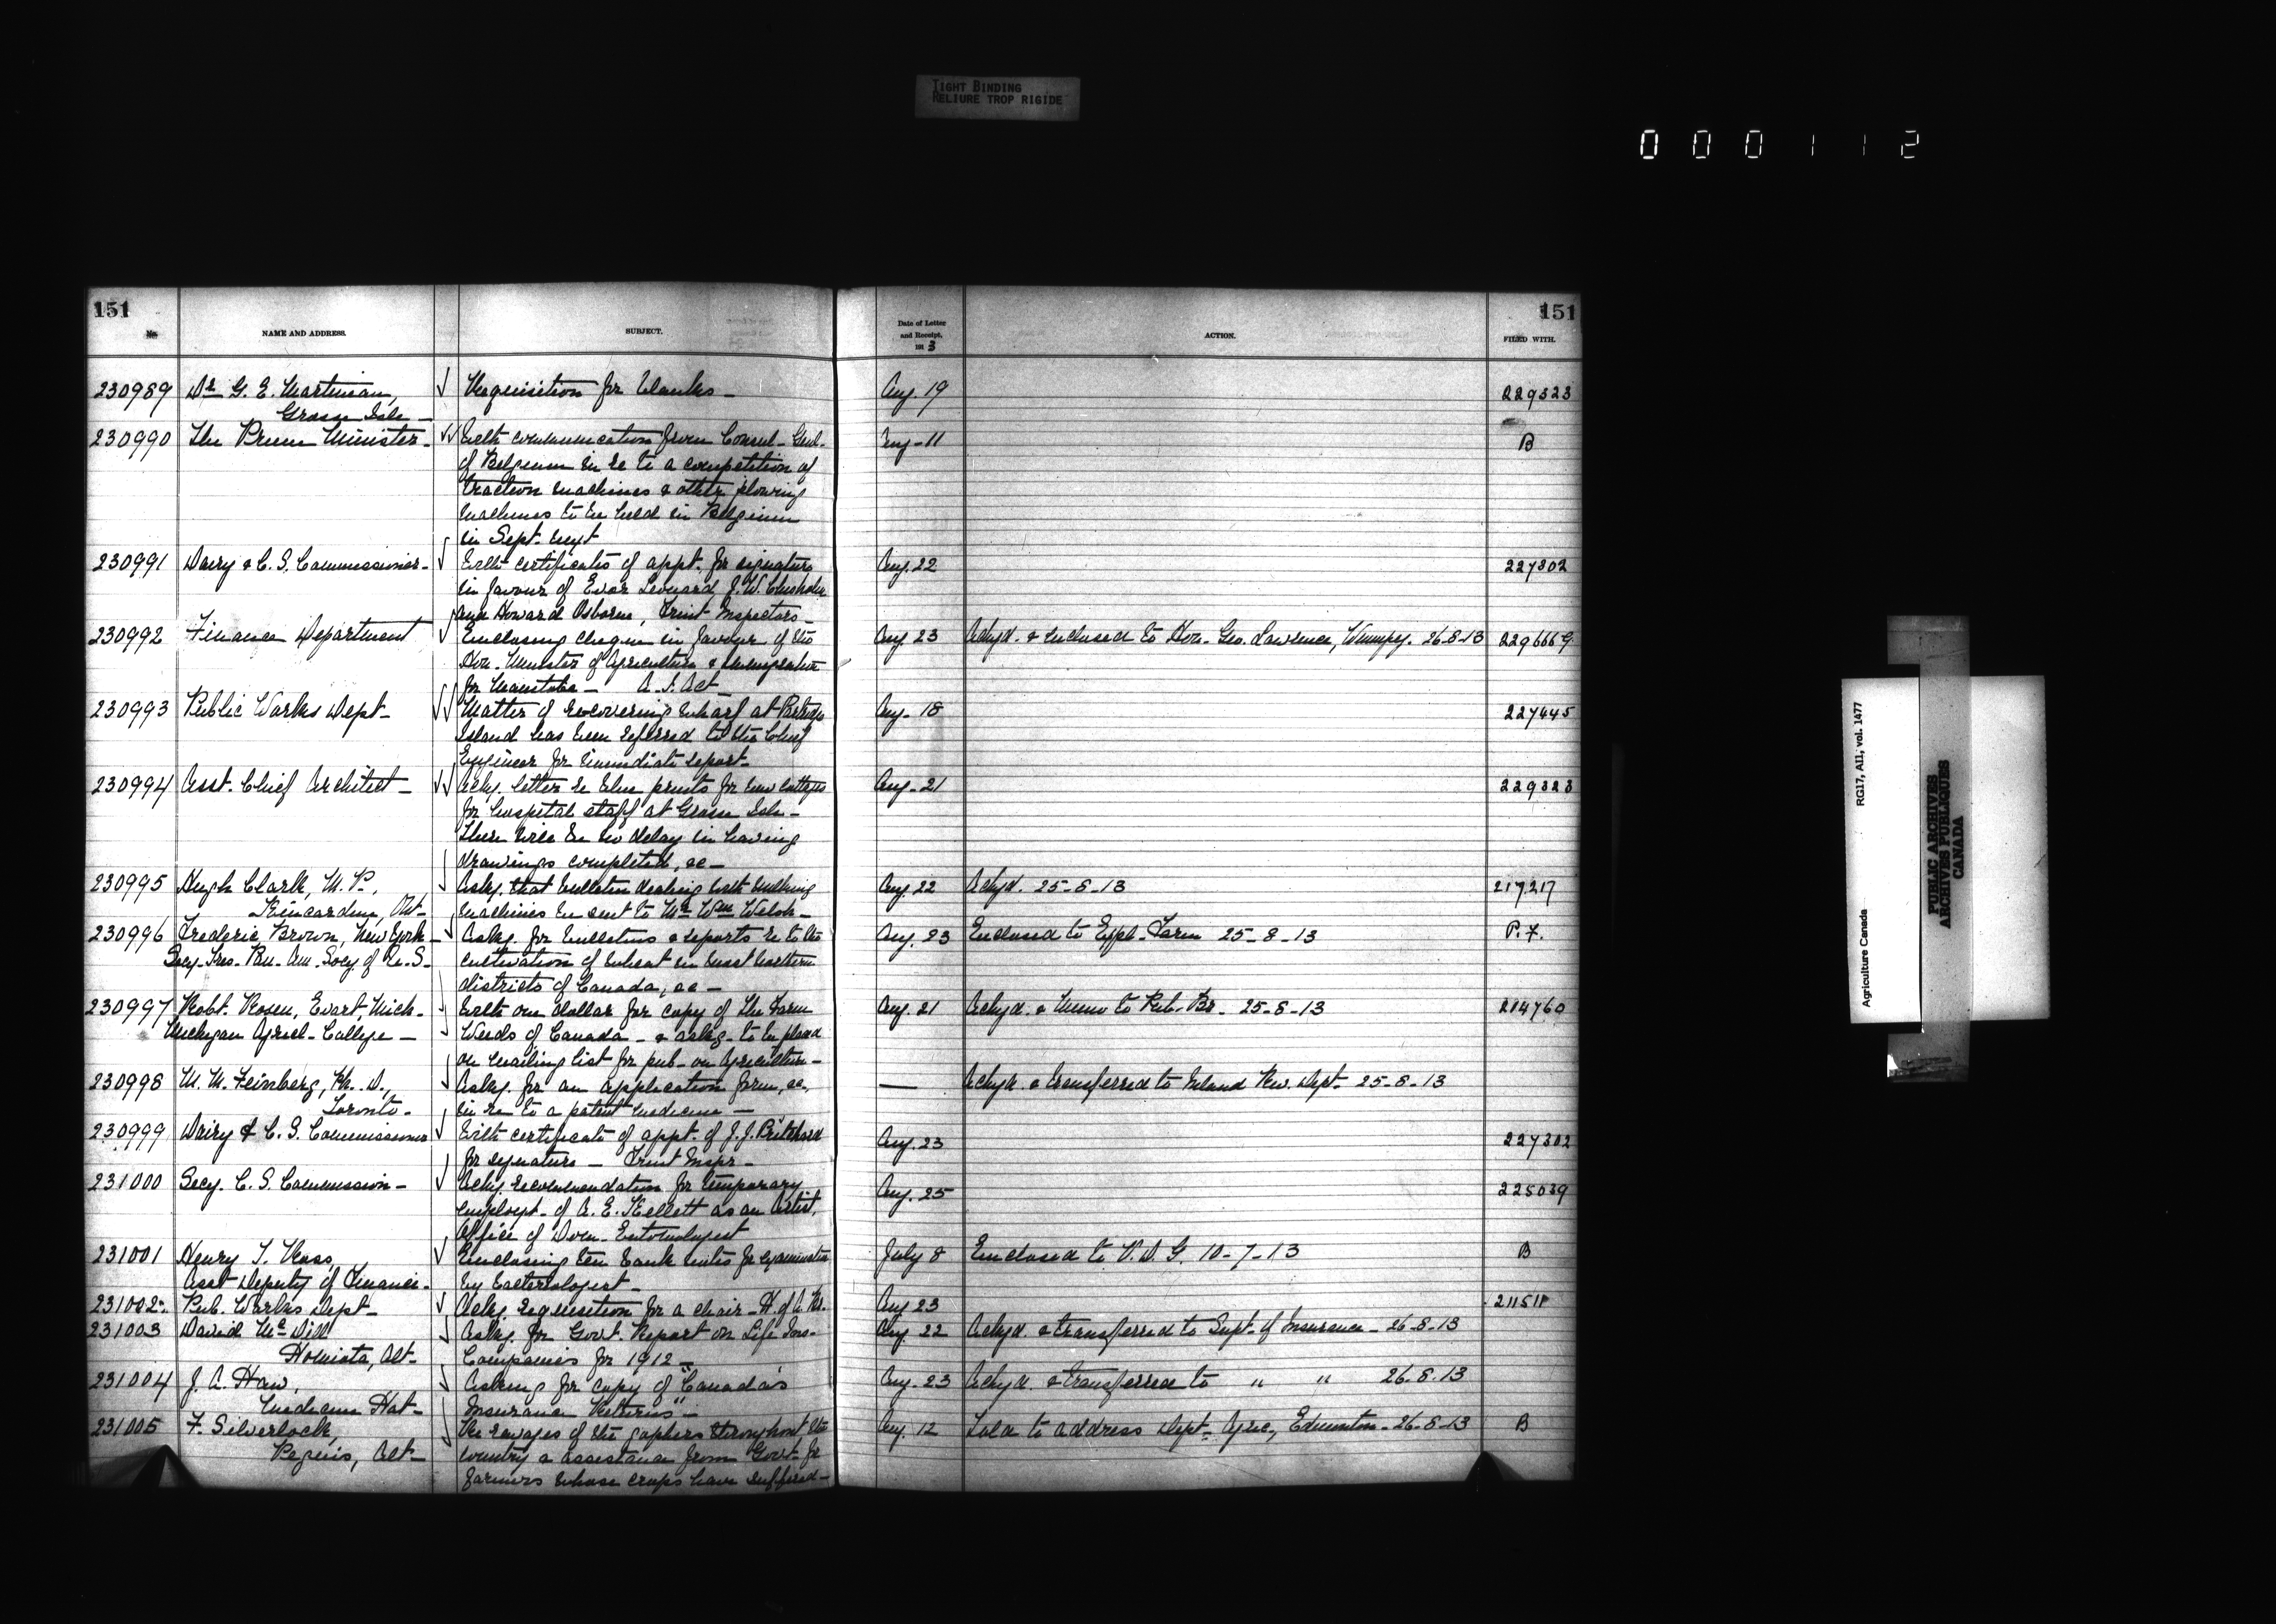 TIGHT BINDING
RELIURE TROP RIGIDE
0 0 0 1 1 2
151
No. NAME AND ADDRESS. SUBJECT.
Date of Letter
and Receipt,
1913
ACTION. FILED WITH.
151
230989 Dr G. E. Martineau, Requisition for blanks - Aug. 19 229323
Grosse Isle -
230990 The Prime Minister - With communication from Consul-Genl. Aug-11 B
of Belgium in re to a competition of
traction machines & other plowing
machines to be held in Belgium
in Sept. next
230991 Dairy & C. S. Commissioner - With certificates of appt. for signature Aug. 22 227302
in favour of Evar Leonard, J. W. Chisholm
and Howard Osborne, Fruit Inspectors -
230992 Finance Department Enclosing cheque in favour of the Aug. 23 Ackgd. & enclosed to Hon. Geo. Lawrence, Winnipeg. 26-8-13 229666 G
Hon. Minister of Agriculture & Immigration
for Manitoba - A. I. Act
230993 Public Works Dept - Matter of recovering wharf at Partridge Aug. 18 227445
Island has been referred to the Chief
Engineer for immediate report -
230994 Asst. Chief Architect - Ackg. letter re blue prints for new cottages Aug-21 229323
for hospital staff at Grosse Isle -
There will be no delay in having
drawings completed, &c -
230995 Hugh Clark, M. P., Askg. that bulletin dealing with milking Aug. 22 Ackgd. 25-8-13 217217
Kincardine, Ont - machines be sent to Mr Wm Welsh -
230996 Frederic Brown, New York - Askg. for bulletins & reports re to the Aug. 23 Enclosed to Exptl. Farm 25-8-13 P. F.
Secy-Tres. Am. Socy of cultivation of wheat in most northern
districts of Canada, &c -
230997 Robt. Rosen, Evart, Mich - With one dollar for copy of the Farm Aug. 21 Ackgd. & Memo to Pub. Br. 25-8-13 214760
Michigan Agricl. College - Weeds of Canada - & askg. to be placed
on mailing list for pub. on Agriculture -
230998 M. M. Feinberg, Ph. D., Askg. for an application form, &c. — Ackgd. & transferred to Inland Rev. Dept - 25-8-13
Toronto - in re to a patent medicine -
230999 Dairy & C. S. Commissioner With certificate of appt. of J. J. Pritchard Aug. 23 227302
for signature - Fruit Inspr -
231000 Secy. C. S. Commission - Ackg. recommendation for temporary Aug. 25 225039
employt. of A. E. Kellett as an Artist,
Office of Dom. Entomologist
231001 Henry T. Ross, Enclosing ten bank notes for examination July 8 Enclosed to V. D. G. 10-7-13 B
Asst Deputy of Finance - by bacteriologist -
231002 Pub. Works Dept - Ackg. requisition for a chair - H. of A. Br. Aug 23 211511
231003 David McDill Askg. for Govt. Report on Life Ins- Aug. 22 Ackgd. & transferred to Supt. of Insurance - 26-8-13
Alt - Companies for 1912 -
231004 J. A. Haw, Asking for copy of "Canada's Aug. 23 Ackgd. & transferred to " " 26.8.13
Medicine Hat - Insurance Returns" -
231005 F. Silverlock, Re ravages of the gophers throughout the Aug. 12 Told to address Dept. Agric, Edmonton - 26-8-13 B
Alt - country & assistance from Govt. for
farmers whose crops have suffered -
Agriculture Canada RG17, AII, vol. 1477
PUBLIC ARCHIVES
ARCHIVES PUBLIQUES
CANADA